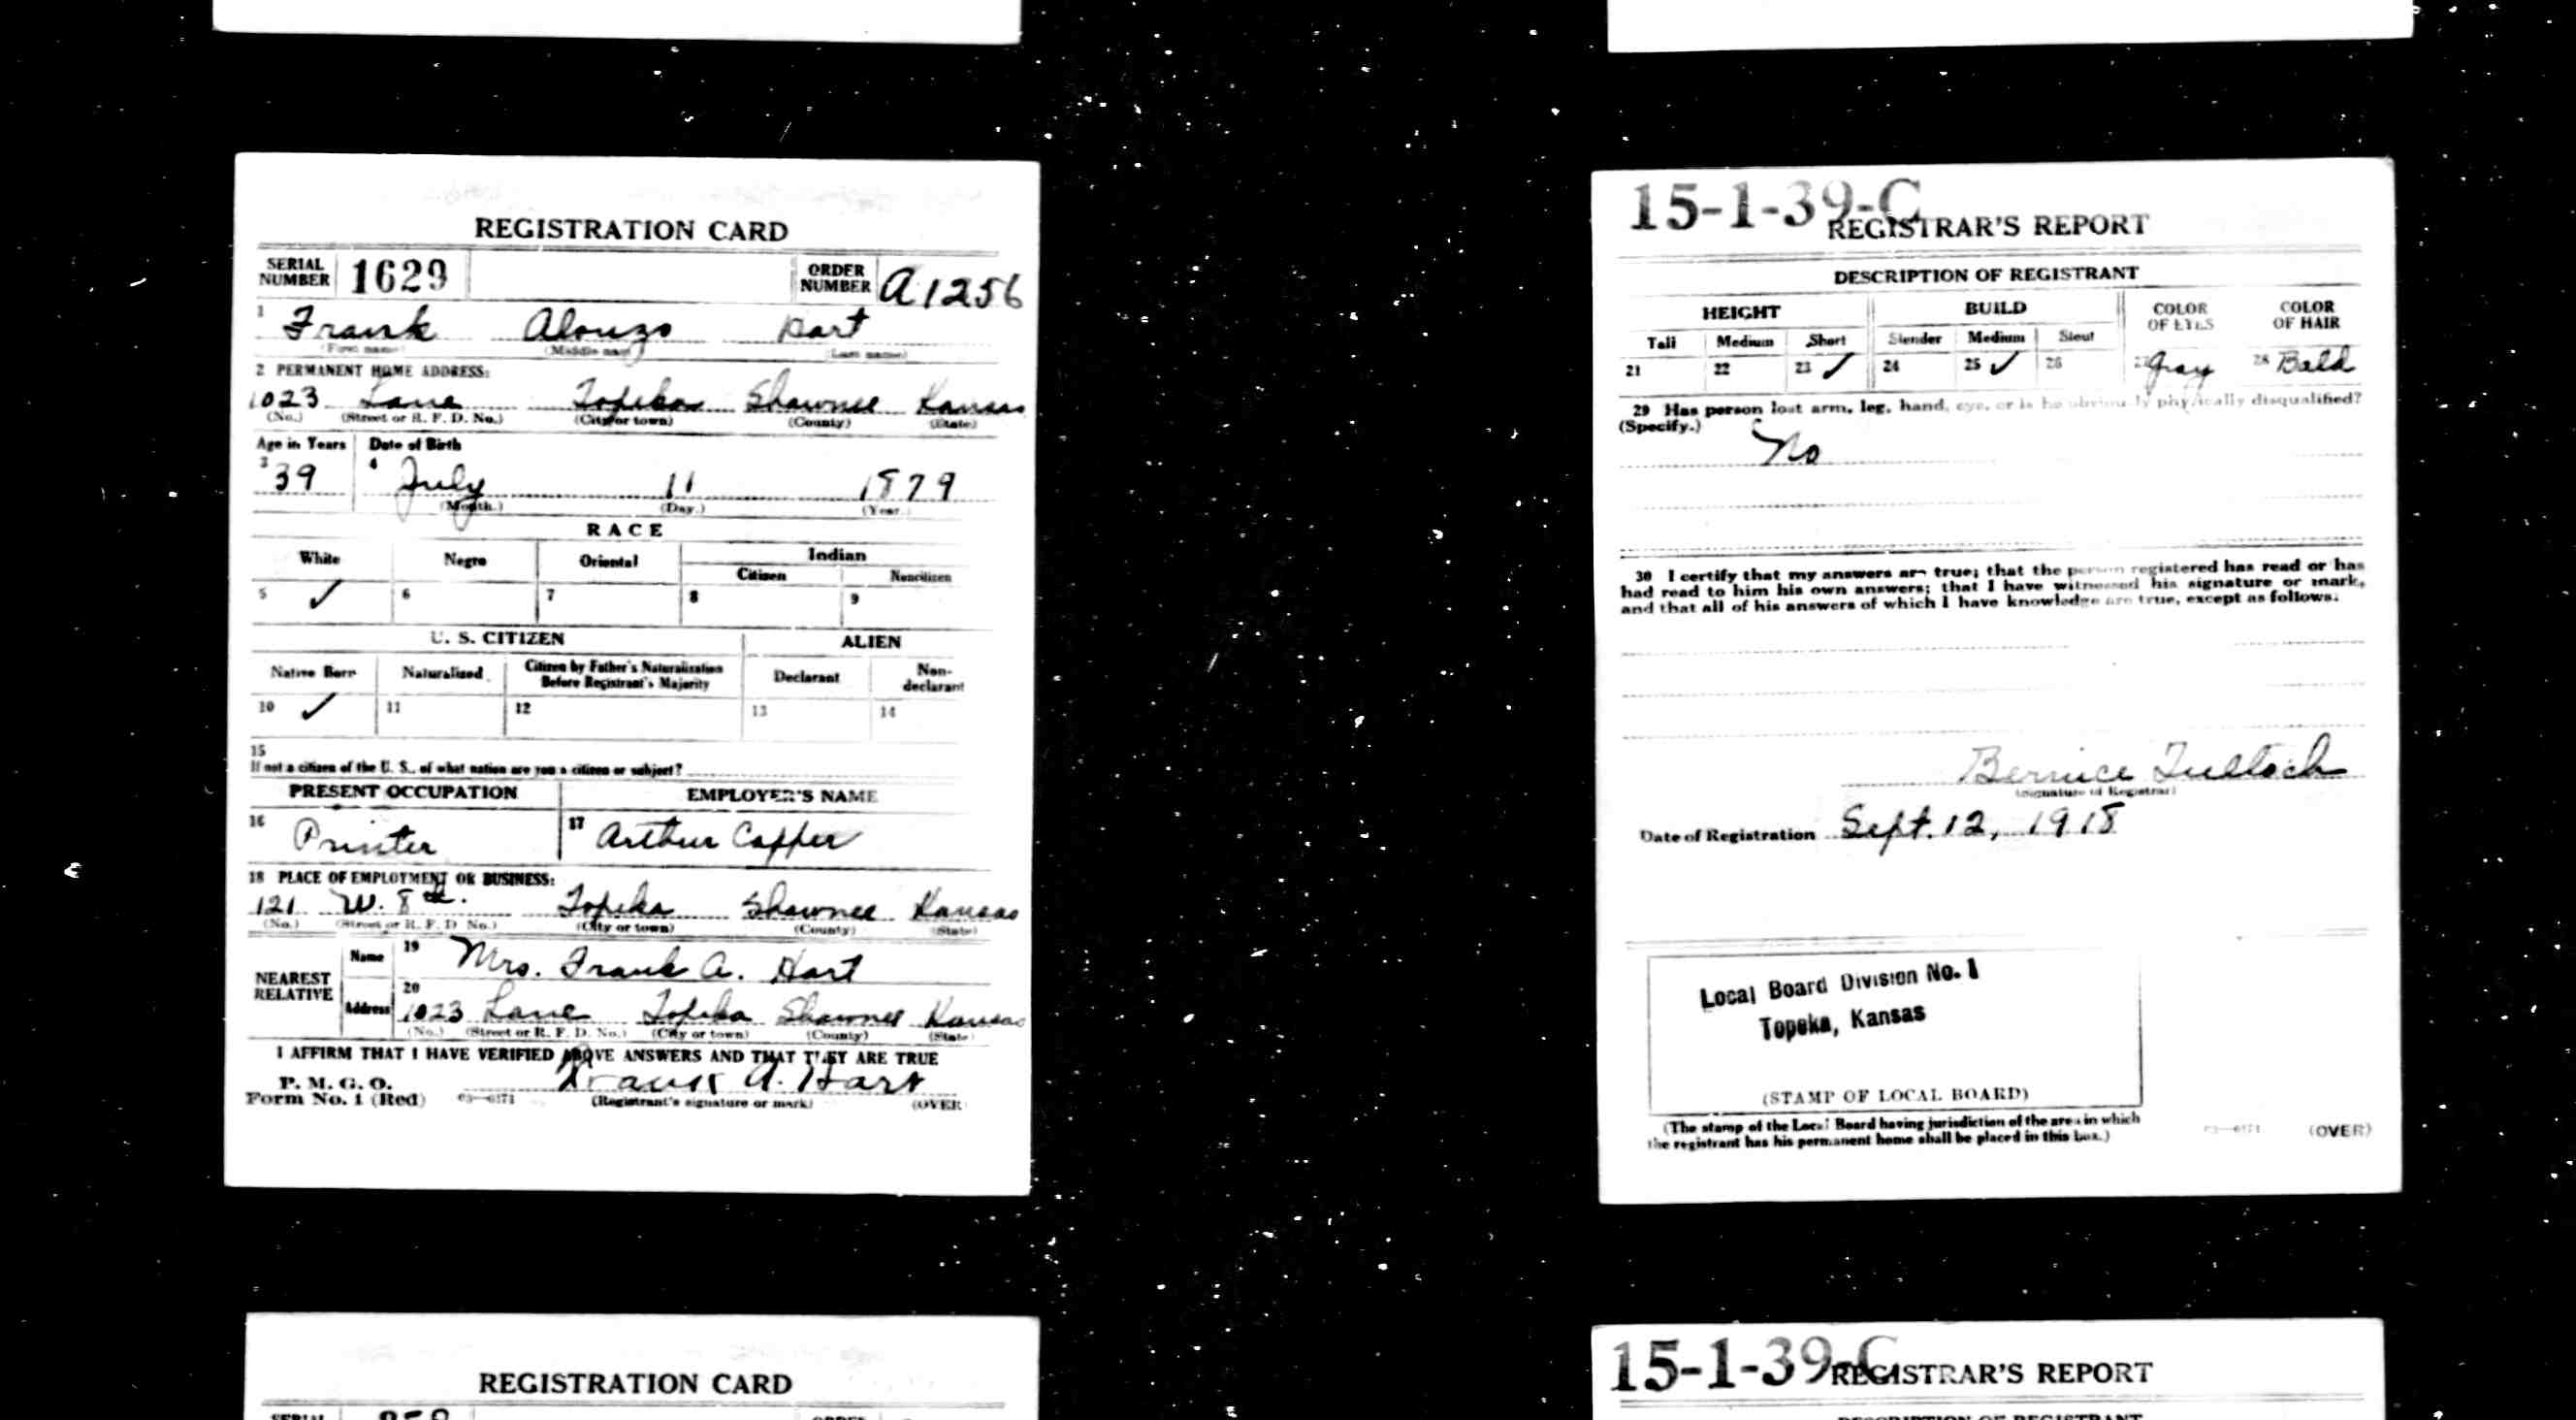 REGISTRATION CARD
SERIAL NUMBER 1629 ORDER NUMBER A1256
1 Frank Alonzo Hart
(First name) (Middle name) (Last name)
2 PERMANENT HOME ADDRESS:
1023 Lane Topeka Shawnee Kansas
(No.) (Street or R. F. D. No.) (City or town) (County) (State)
Age in Years Date of Birth
3 39 4 July 11 1879
(Month.) (Day.) (Year.)
RACE
White Negro Oriental Indian
Citizen Noncitizen
5 ✓ 6 7 8 9
U. S. CITIZEN ALIEN
Native Born Naturalized Citizen by Father's Naturalization Before Registrant's Majority Declarant Non-declarant
10 ✓ 11 12 13 14
15
If not a citizen of the U. S., of what nation are you a citizen or subject?
PRESENT OCCUPATION EMPLOYER'S NAME
16 Printer 17 Arthur Capper
18 PLACE OF EMPLOYMENT OR BUSINESS:
121 W. 8th. Topeka Shawnee Kansas
(No.) (Street or R. F. D. No.) (City or town) (County) (State)
NEAREST RELATIVE
Name 19 Mrs. Frank A. Hart
Address 20 1023 Lane Topeka Shawnee Kansas
(No.) (Street or R. F. D. No.) (City or town) (County) (State)
I AFFIRM THAT I HAVE VERIFIED ABOVE ANSWERS AND THAT THEY ARE TRUE
P. M. G. O.
Form No. 1 (Red) 03—6171 Frank A. Hart
(Registrant's signature or mark) (OVER)
15-1-39-C
REGISTRAR'S REPORT
DESCRIPTION OF REGISTRANT
HEIGHT BUILD COLOR OF EYES COLOR OF HAIR
Tall Medium Short Slender Medium Stout
21 22 23 ✓ 24 25 ✓ 26 27 Gray 28 Bald
29 Has person lost arm, leg, hand, eye, or is he obviously physically disqualified?
(Specify.)
No
30 I certify that my answers are true; that the person registered has read or has
had read to him his own answers; that I have witnessed his signature or mark,
and that all of his answers of which I have knowledge are true, except as follows:
Bernice Tulloch
(Signature of Registrar)
Date of Registration Sept. 12, 1918
Local Board Division No. 1
Topeka, Kansas
(STAMP OF LOCAL BOARD)
(The stamp of the Local Board having jurisdiction of the area in which
the registrant has his permanent home shall be placed in this box.)
03—6171 (OVER)
REGISTRATION CARD
SERIAL
15-1-39-C
REGISTRAR'S REPORT
DESCRIPTION OF REGISTRANT